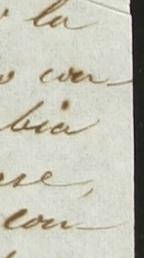 la
con-
bia
se,
con-